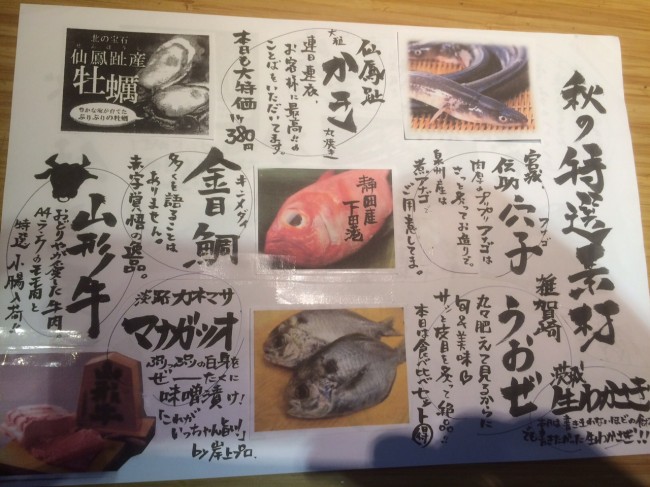 秋の特選素材
宮城
アナゴ
伝助穴子
肉厚のプリプリアナゴは
さっと炙ってお造りで。
泉州産は
煮アナゴで
ご用意してます。
雑賀崎
うおぜ
丸々肥えて見るからに
旬の美味
サッと皮目を炙って絶品。
本日は食べ比べセット(得)
生わさび
仙鳳趾
大粒
かき
連日連夜、
お客様に最高の
ことばをいただいてます。
本日も大特価 1ヶ380円
北の宝石
せんぽうし
仙鳳趾産
牡蠣
ぷりぷりの牡蠣
静岡産
下田港
キンメダイ
金目鯛
多くを語ることは
ありません。
赤字覚悟の逸品。
淡路
マナガツオ
ぷりっぷりの白身を
ぜーたくに
味噌漬け!
「これが
いっちゃん旨い!」
by 岸上プロ.
山形牛
A4ランクのモモ肉と
特選 小腸入荷!!
山形牛